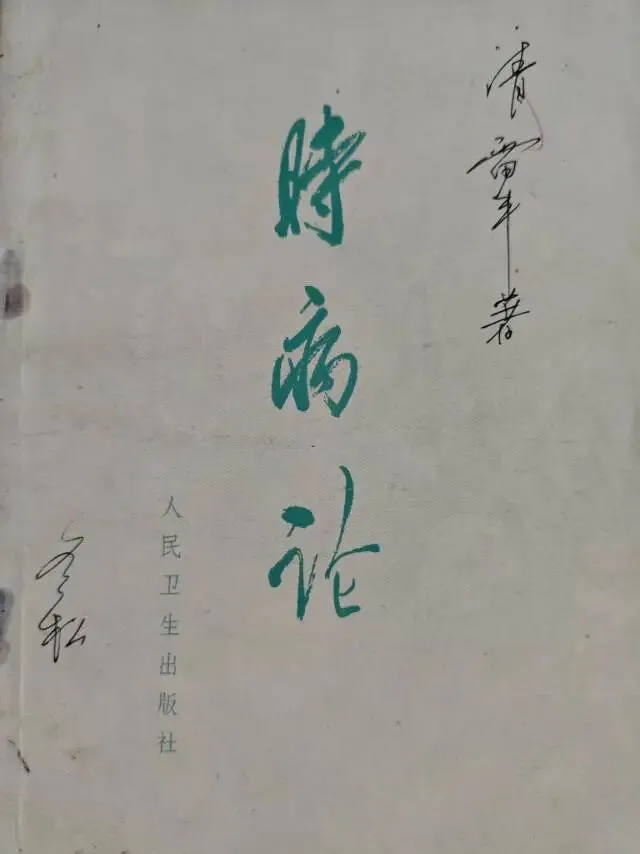 清雷丰著
時病论
人民卫生出版社